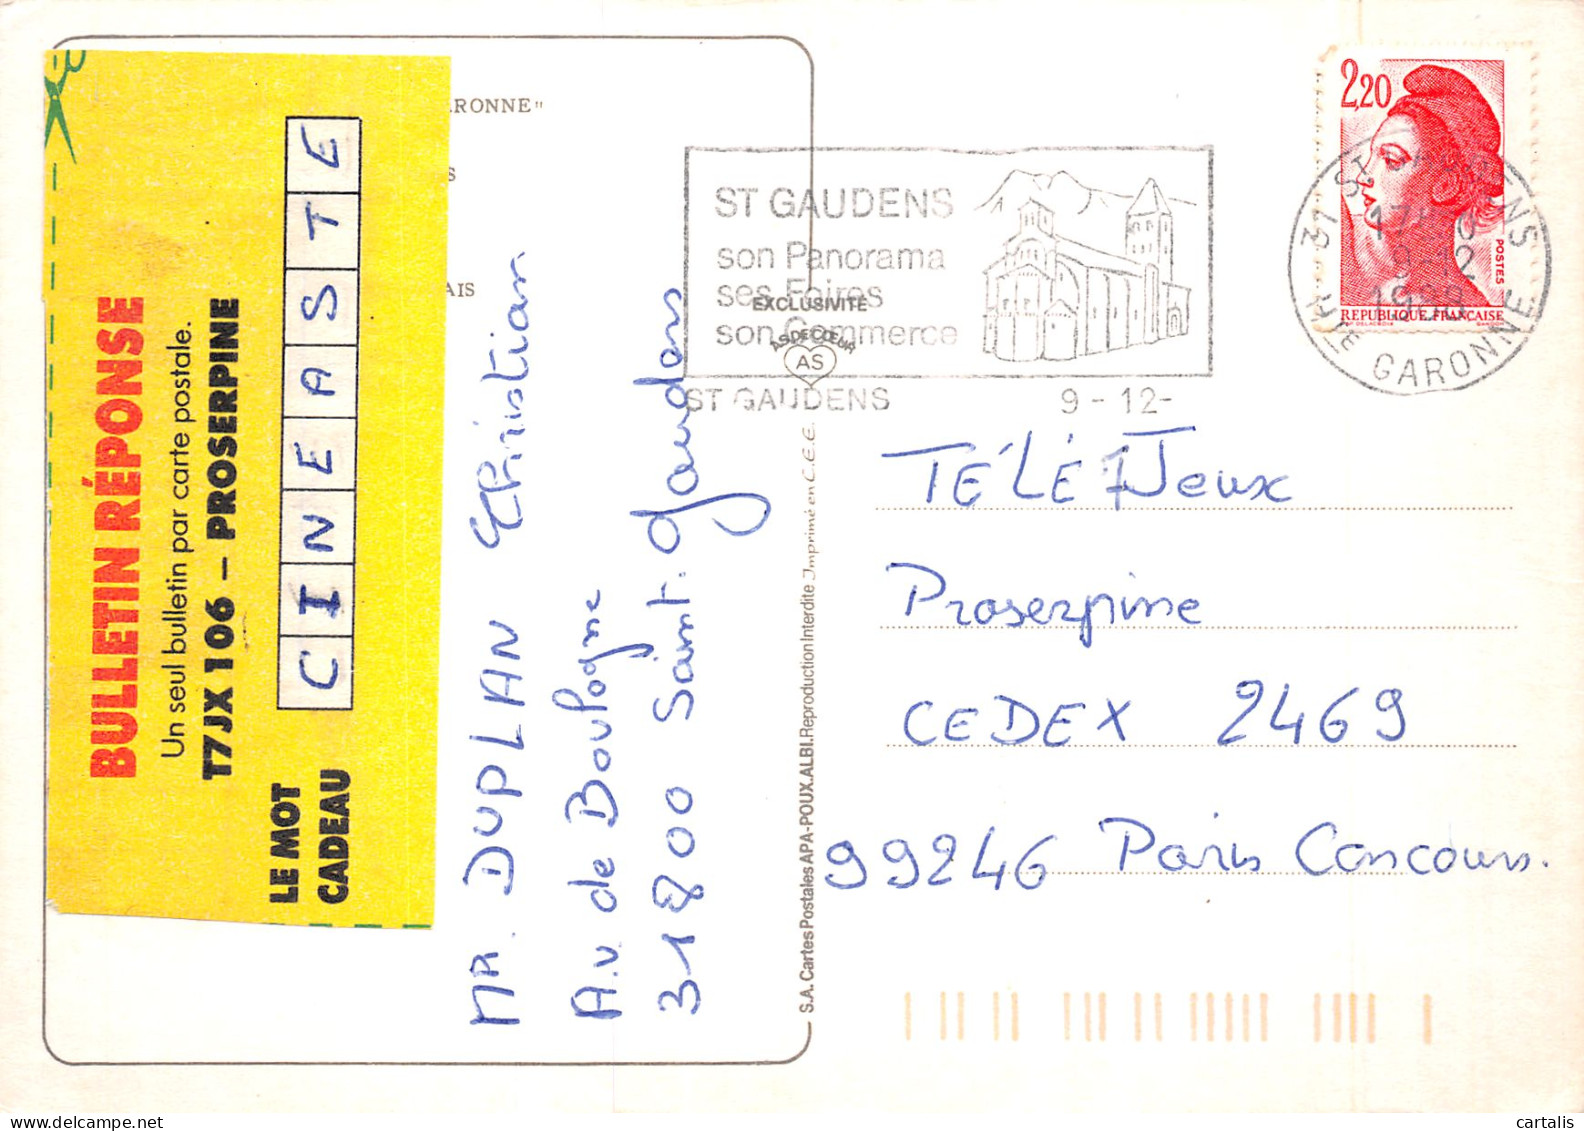 BULLETIN RÉPONSE
Un seul bulletin par carte postale.
T7JX 106 – PROSERPINE
LE MOT
CADEAU
CINEASTE
RONNE"
S
AIS
MR. DUPLAN Christian
Av. de Boulogne
31800 Saint. Gaudens
S.A. Cartes Postales APA-POUX.ALBI.Reproduction Interdite Imprimé en C.E.E.
EXCLUSIVITÉ
AS DE CŒUR
AS
ST GAUDENS
son Panorama
ses Foires
son Commerce
ST GAUDENS 9-12-
2,20
POSTES
REPUBLIQUE FRANÇAISE
31 ST GAUDENS
9-12
HTE GARONNE
TÉLÉ 7 Jeux
Proserpine
CEDEX 2469
99246 Paris Concours.
cartalis
www.delcampe.net